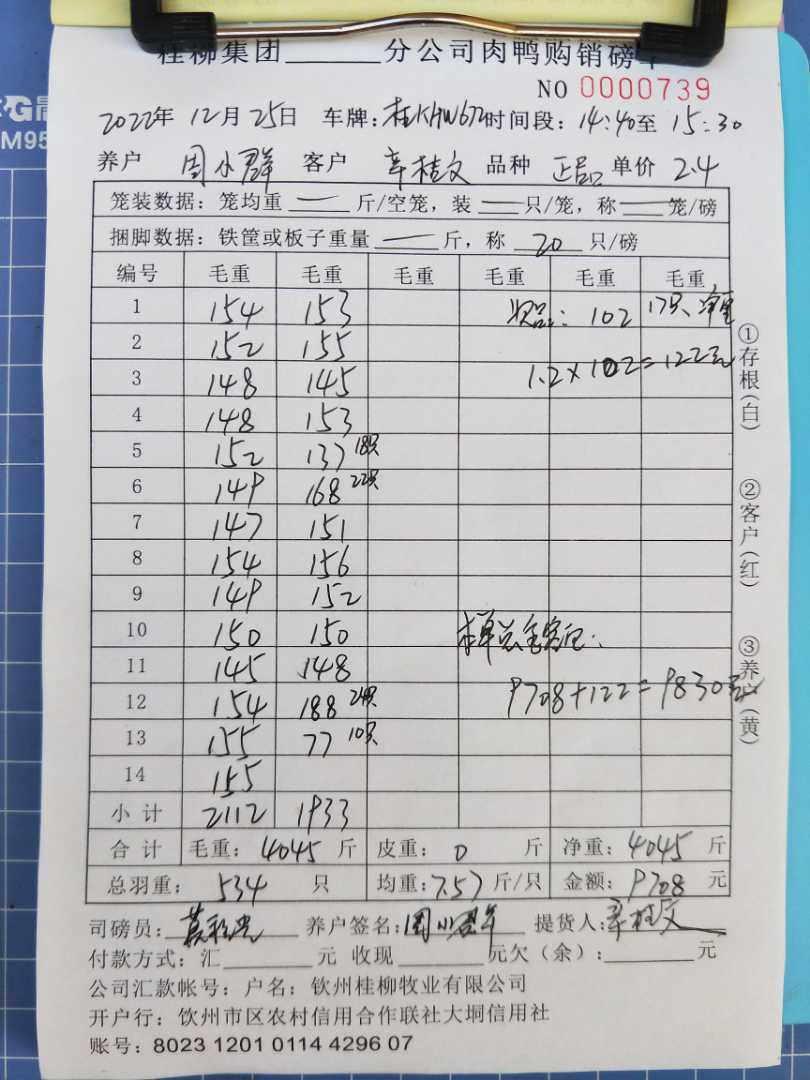 桂柳集团______分公司肉鸭购销磅单
NO 0000739
2022年 12月 25日 车牌: 桂KHW672 时间段: 14:40至 15:30
养户 周小群 客户 辛桂文 品种 正品 单价 2.4
笼装数据: 笼均重 — 斤/空笼, 装 — 只/笼, 称 — 笼/磅
捆脚数据: 铁筐或板子重量 — 斤, 称 20 只/磅
编号 毛重 毛重 毛重 毛重 毛重 毛重
1 154 153 次品: 102 17只、净重
2 152 155 1.2×102=122元
3 148 145
4 148 153
5 152 137 18只
6 149 168 22只
7 147 151
8 154 156
9 149 152
10 150 150 本单总金额
11 145 148
12 154 188 24只 9708+122=9830元
13 155 77 10只
14 155
小计 2112 1933
合计 毛重: 4045 斤 皮重: 0 斤 净重: 4045 斤
总羽重: 534 只 均重: 7.57 斤/只 金额: 9708 元
司磅员: 养户签名: 周小群 提货人: 辛桂文
付款方式: 汇______元 收现______元欠(余):______元
公司汇款帐号: 户名: 钦州桂柳牧业有限公司
开户行: 钦州市区农村信用合作联社大垌信用社
账号: 8023 1201 0114 4296 07
①存根(白)
②客户(红)
③养户(黄)
M95